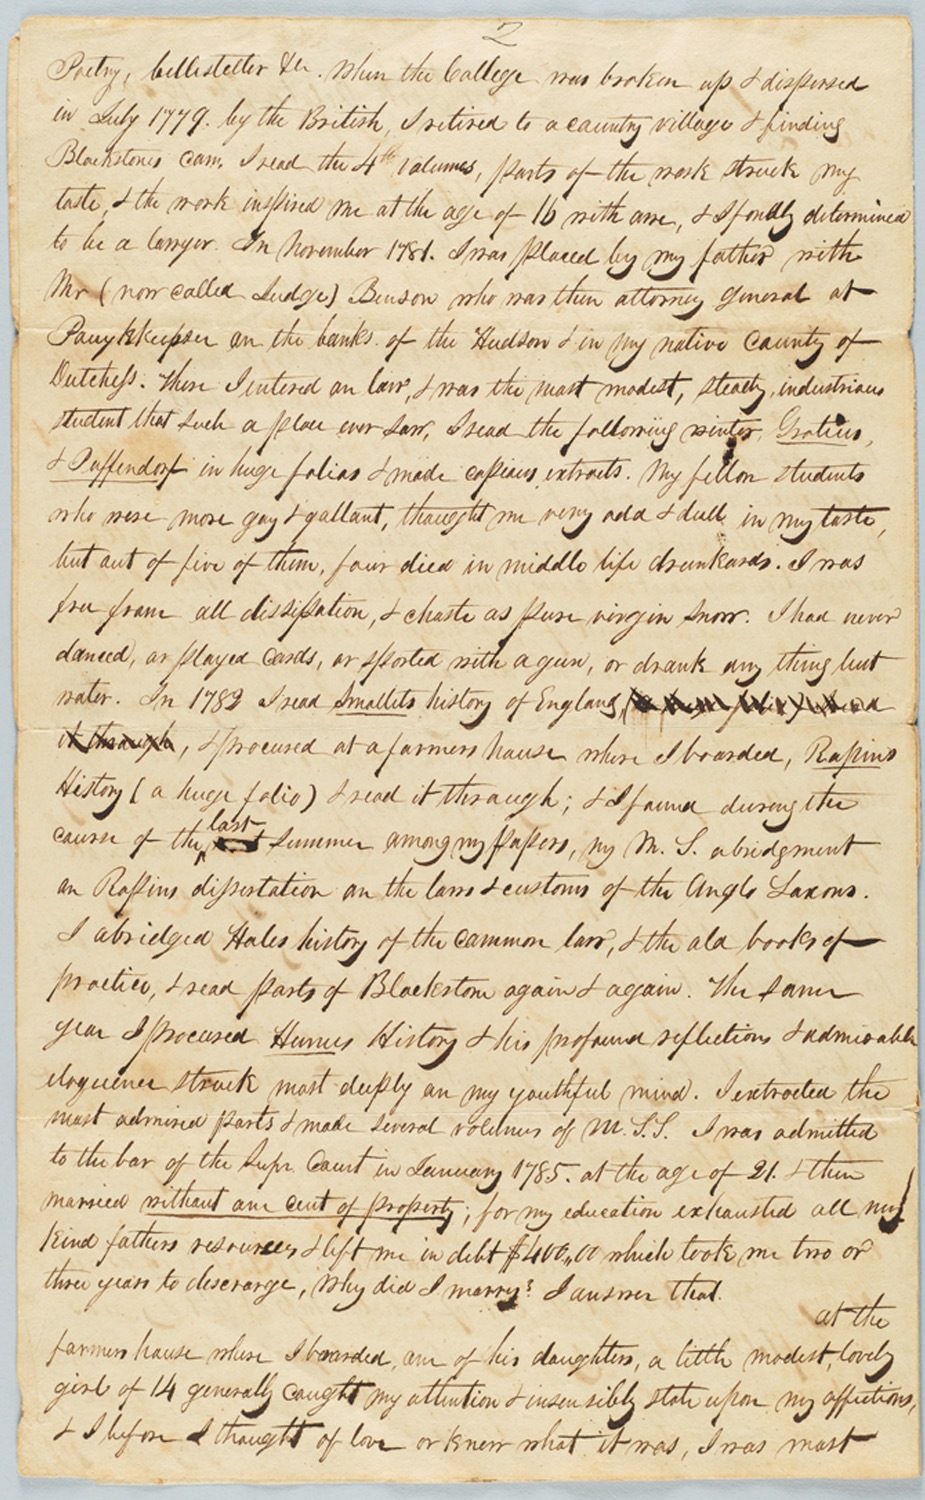 2
Poetry, bellesletter &c. When the College was broken up & dispersed
in July 1779. by the British, I retired to a country village & finding
Blackstones Com, I read the 4th volumes, parts of the work struck my
taste, & the work inspired me at the age of 16 with awe, & I fondly determined
to be a lawyer. In November 1781. I was placed by my father with
Mr (now called Judge) Benson who was then attorney General at
Pouykkeepsee on the banks of the Hudson & in my native County of
Dutchess. There I entered on law, & was the most modest, steady, industrious
student that such a place ever saw, I read the following winter, Grotius,
& Puffendorf in huge folios & made copious extracts. My fellow students
who were more gay & gallant, thought me very odd & dull in my taste,
but out of five of them, four died in middle life drunkards. I was
free from all dissipation, & chaste as pure virgin snow. I had never
danced, or played cards, or sported with a gun, or drank any thing but
water. In 1782 I read Smollets history of England,
it through, & procured at a farmers house where I boarded, Rapins
History (a huge folio) & read it through; & I found during the
course of the last summer among my papers, my M. S. abridgment
on Rapins dissertation on the laws & customs of the Anglo Saxons.
I abridged Hales history of the common law, & the old books of
practice, & read parts of Blackstone again & again. The same
year I procured Humes History & his profound reflections & admirable
eloquence struck most deeply on my youthful mind. I extracted the
most admired parts & made several volumes of M.S.S. I was admitted
to the bar of the Supr Court in January 1785. at the age of 21. & then
married without one cent of property; for my education exhausted all my
kind fathers resources & left me in debt $400,,00 which took me two or
three years to discrarge, Why did I marry? I answer that.
at the
farmers house where I boarded, one of his daughters, a little modest, lovely
girl of 14 generally caught my attention & insensibly stole upon my affections,
& I before I thought of love or knew what it was, I was most